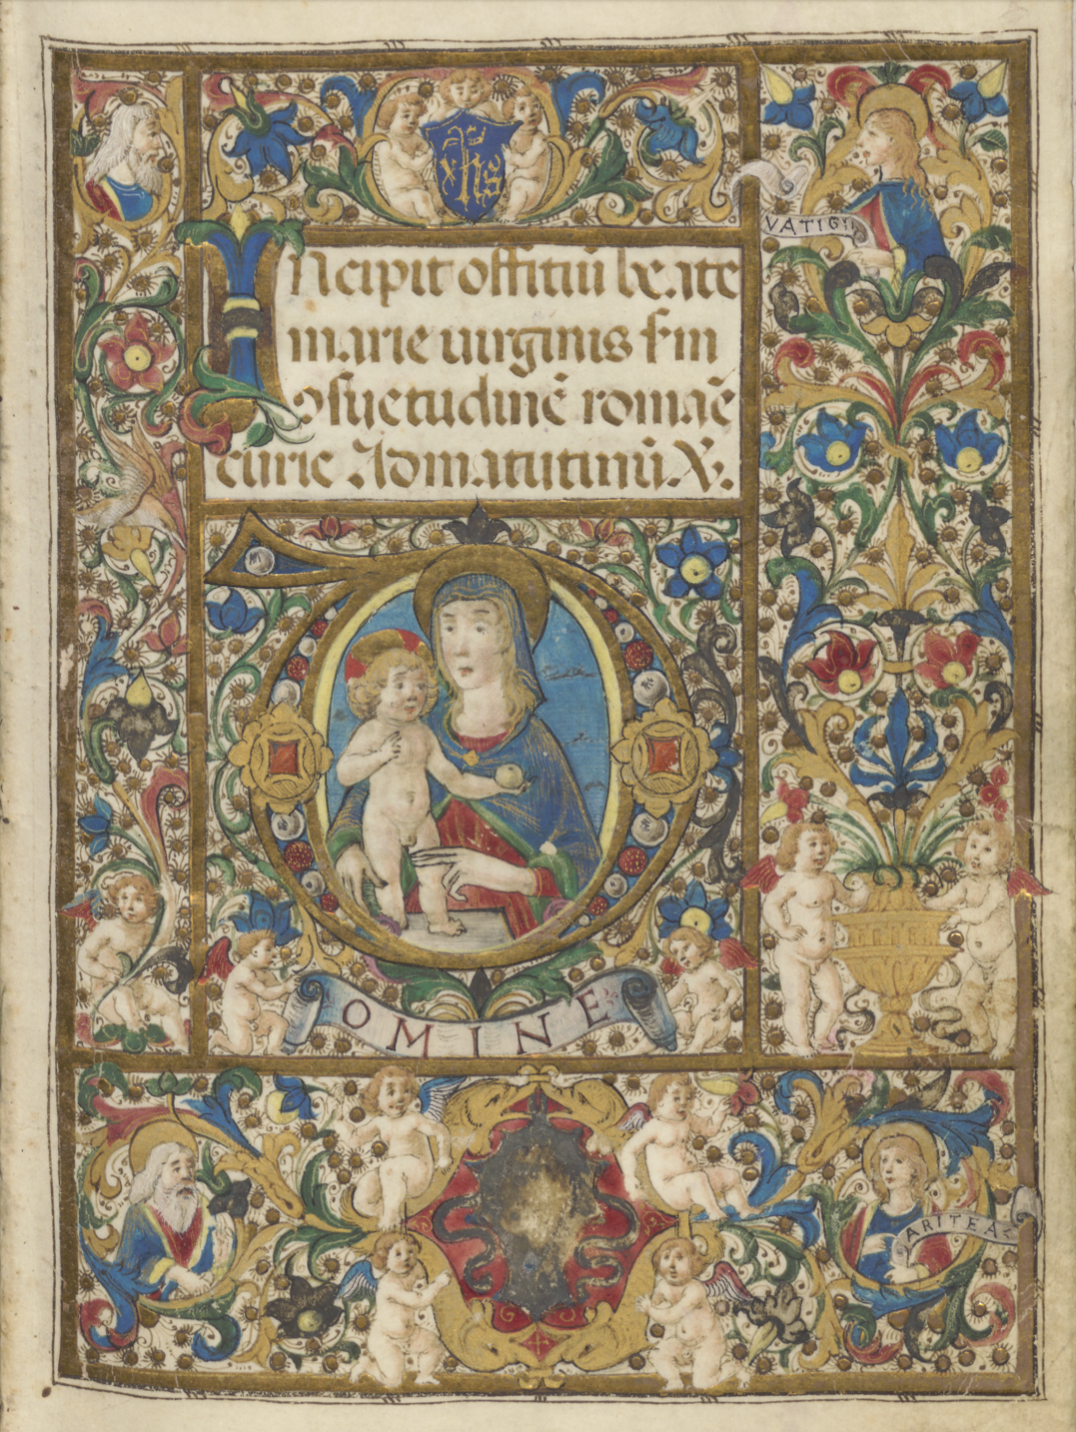 xhs
VATIGI
INcipit offitiũ beate
marie uirginis s'm
ɔsuetudinẽ romaẽ
curie Ad matutinũ X.
D
OMINE
ARITEA